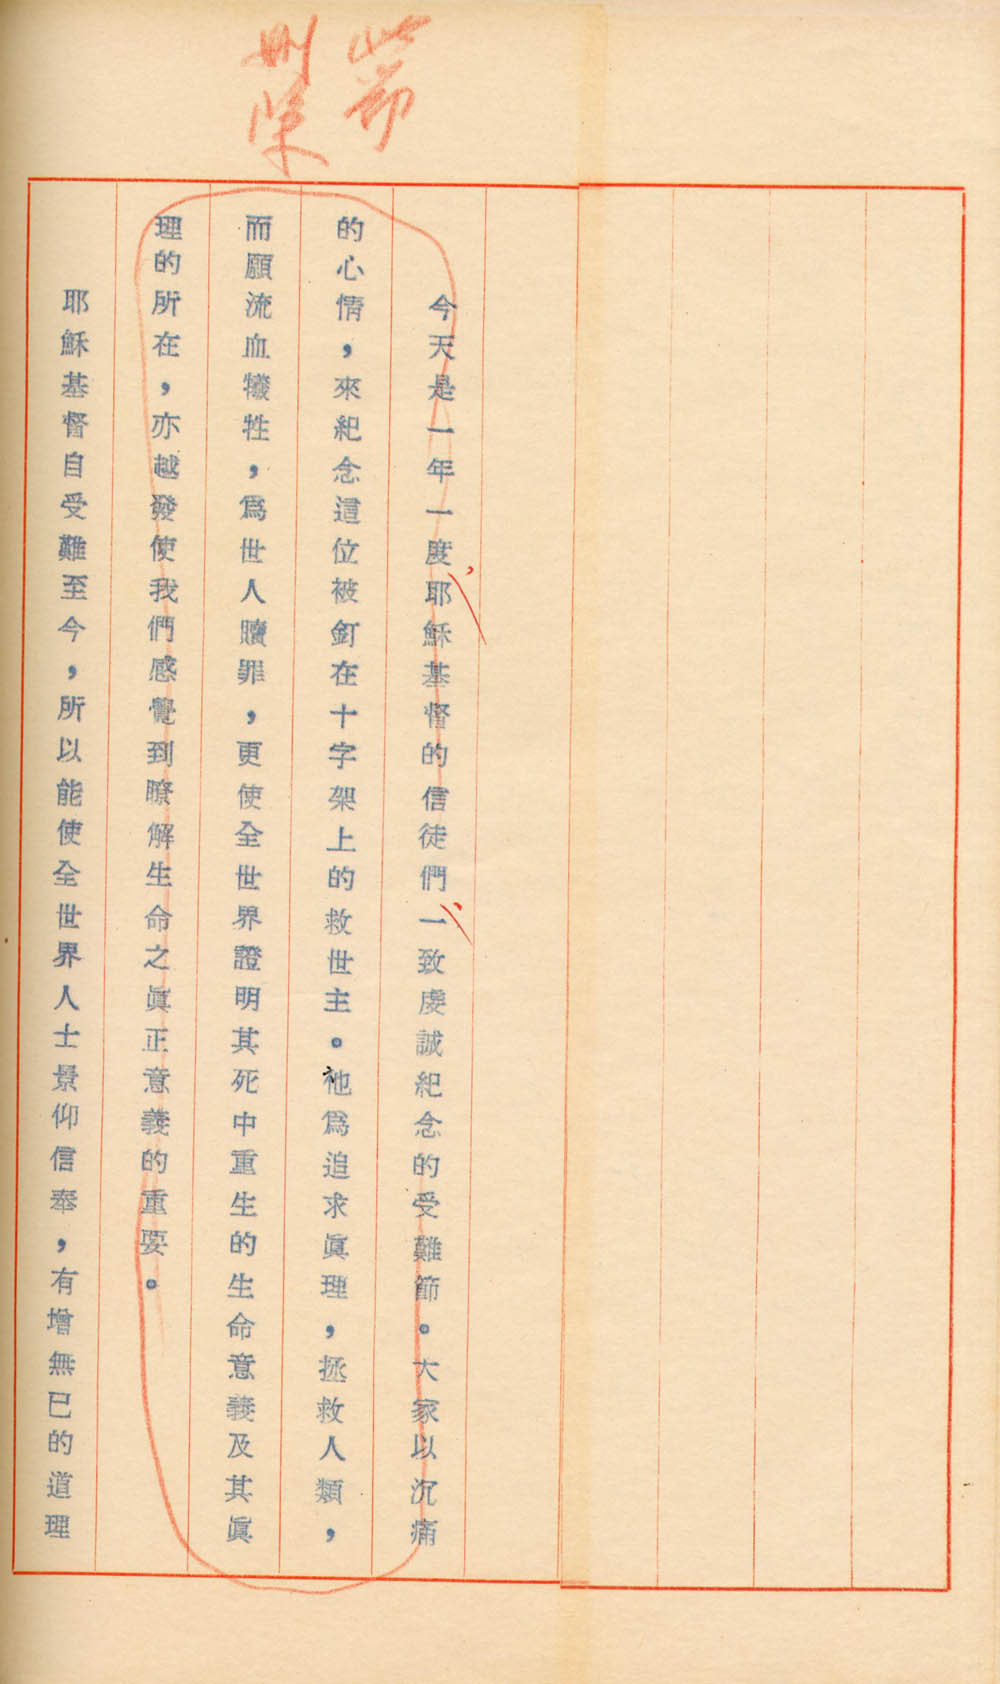 此節
刪除
今天是一年一度、耶穌基督的信徒們、一致虔誠紀念的受難節。大家以沉痛
的心情，來紀念這位被釘在十字架上的救世主。祂爲追求眞理，拯救人類，
而願流血犧牲，爲世人贖罪，更使全世界證明其死中重生的生命意義及其眞
理的所在，亦越發使我們感覺到瞭解生命之眞正意義的重要。
耶穌基督自受難至今，所以能使全世界人士景仰信奉，有增無已的道理